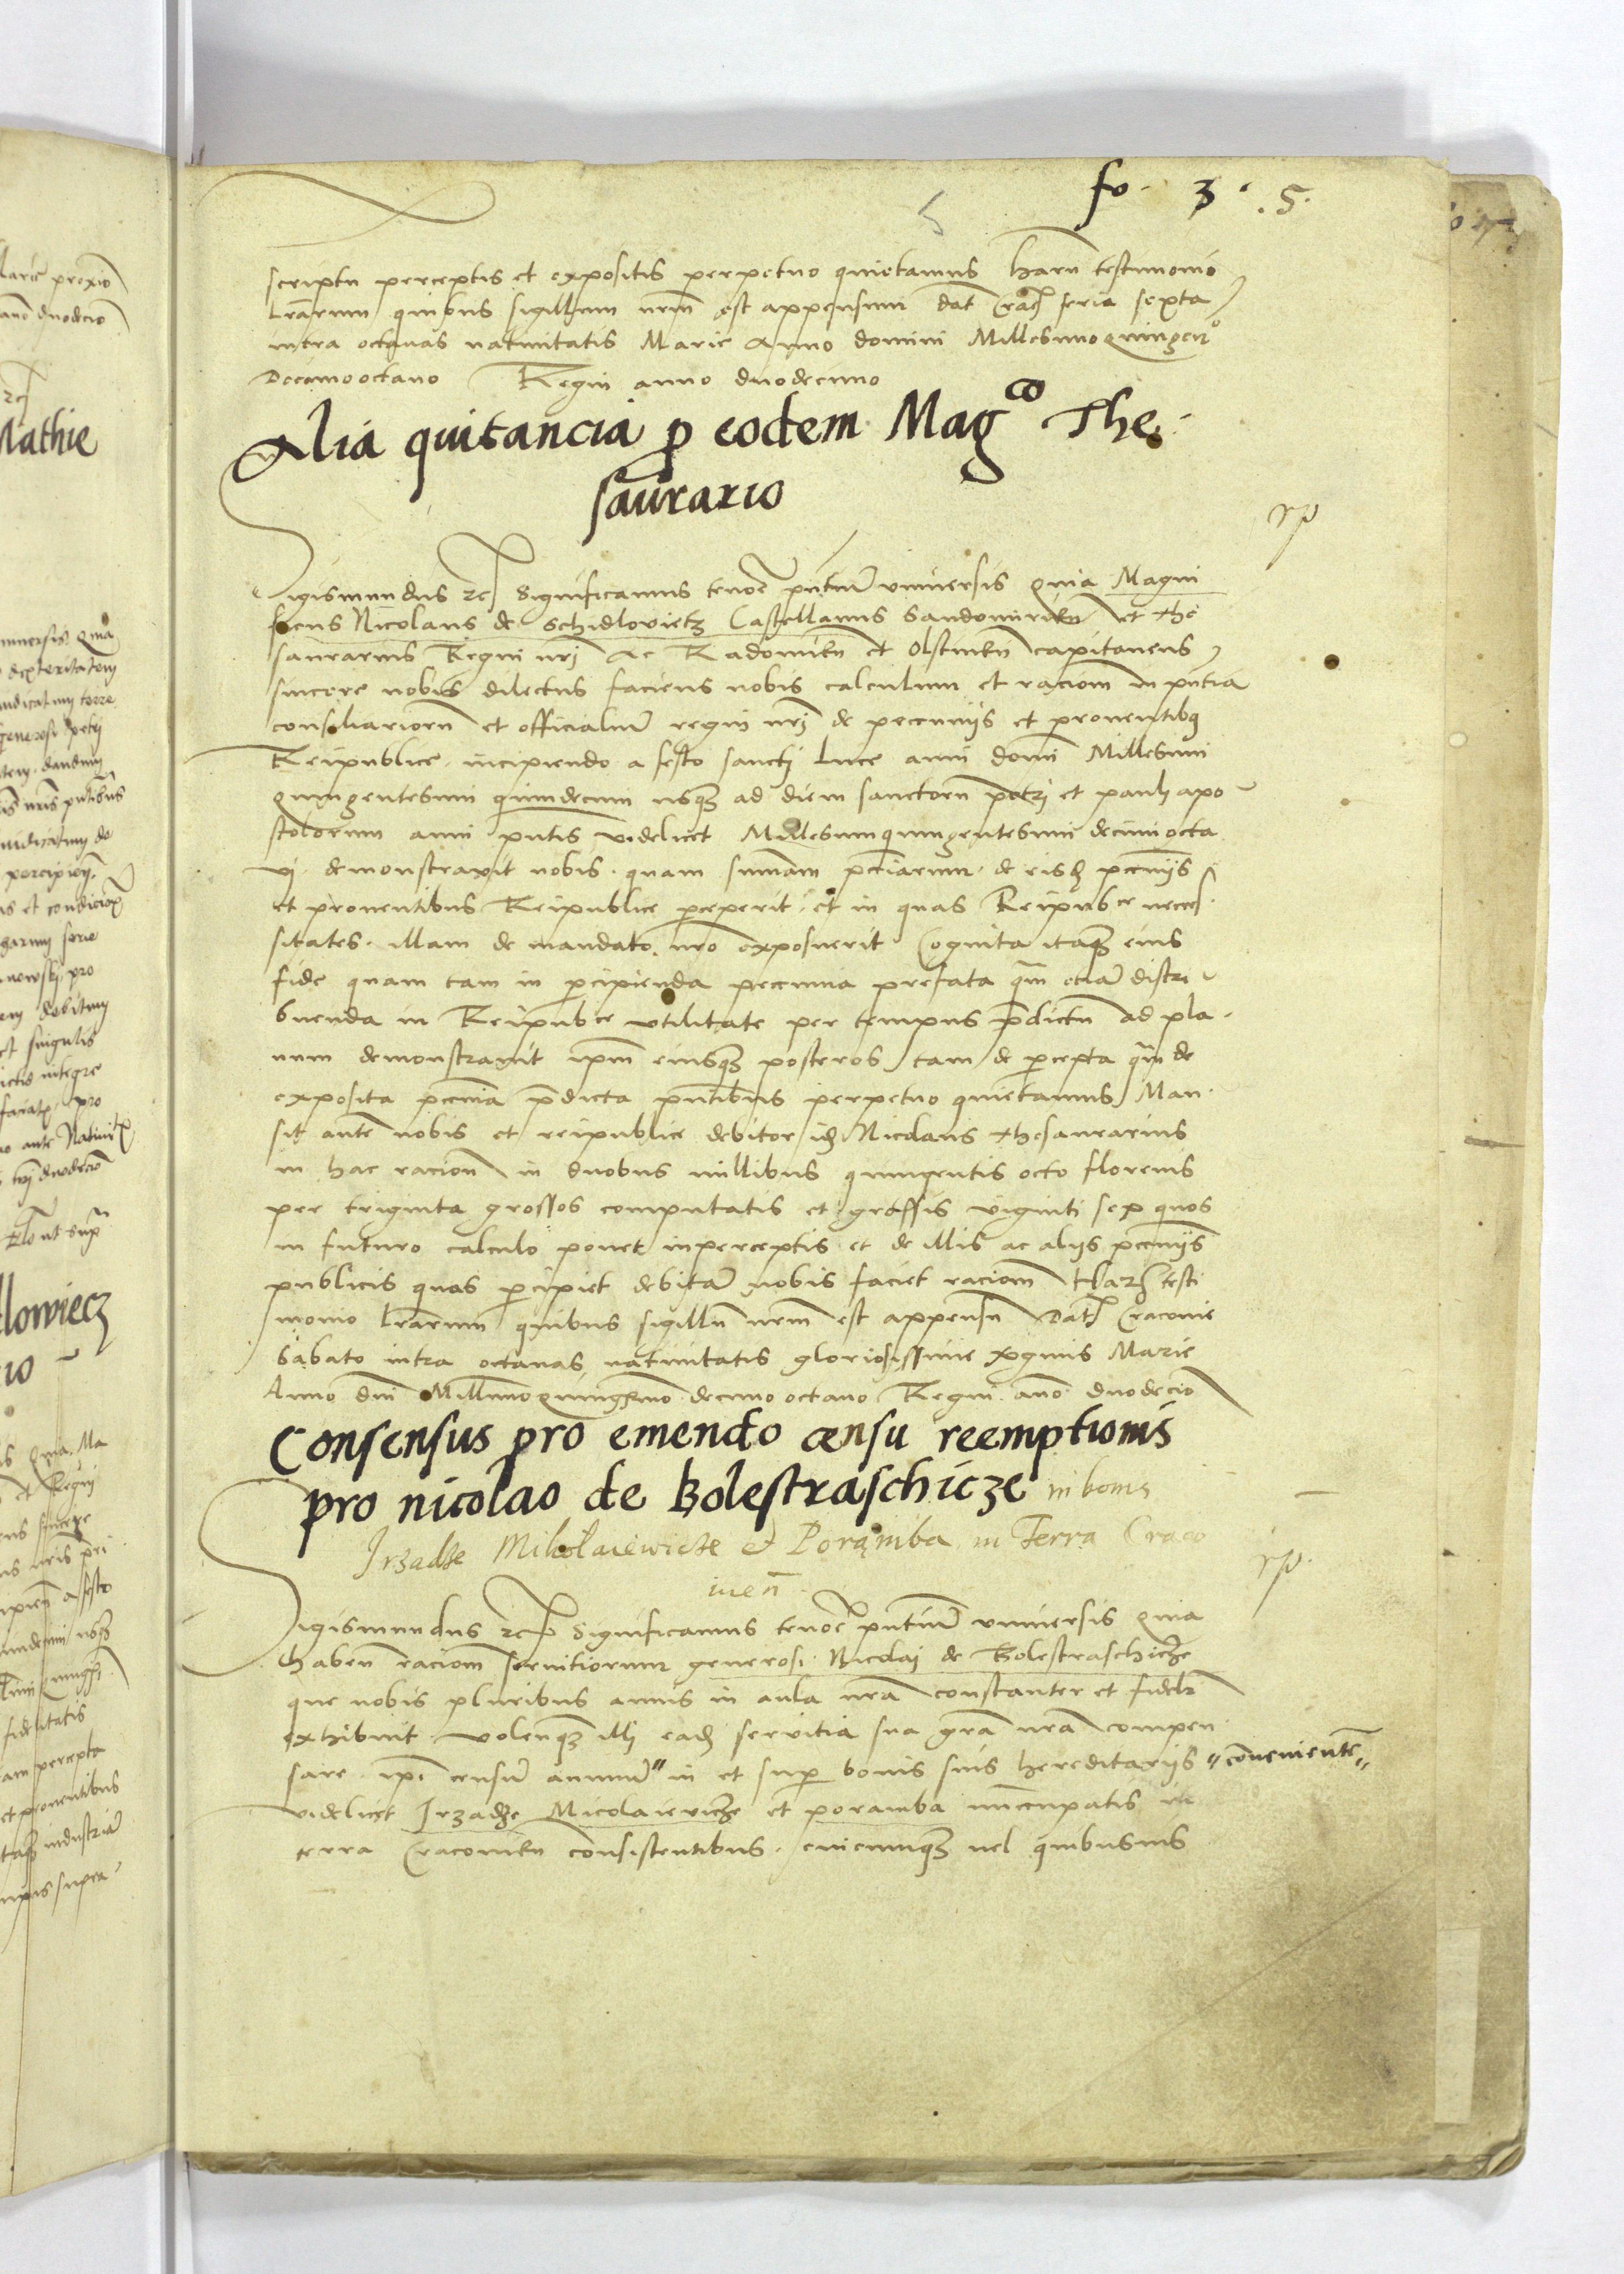 fo. 3. .5.
scriptu perceptis et expositis perpetuo quietamus harũ testimonio
Lrarum quibus sigillum nrm est appensum Dat Crac feria sexta
intra octavas nativitatis Marie Anno domini Millesimoquingen°
Decimooctavo Regni anno duodecimo
Alia quitancia p eodem Mag^co The
saurario
rp
Sigismundus rc Significamus tenore pntium universis quia Magni
ficus Nicolaus de Schidlovietz Castellanus Sandomirieñ et the
saurarius Regni nri ac Radomieñ et Olstineñ capitaneus
sincere nobis dilectus faciens nobis calculum et raciom in pñtia
consiliariorũ et officialium regni nri de pecuniis et proventibq
Reipublice incipiendo a festo sancti Luce anni domi Millesimi
quingentesimi quindecimi usqz ad diem sanctorũ petri et pauli apo
stolorum anni pñtis videlicet Millesimiquingentesimi decimiocta
vi demonstravit nobis quam summam pecciarum de eisd pecuniis
et proventibus Reipublice perceperit et in quas Reipub^ce neces
sitates illam de mandato nro exposuerit Cognita itaqz eius
fide quam tam in pcipienda peccunia prefata qm etiã distri
buenda in Reipub^ce utilitate per tempus pdictũ ad pla
num demonstravit ipm eiusqz posteros tam de pcepta qm de
exposita peccunia pdicta pntibus perpetuo quietamus Man
sit autẽ nobis et reipublice debitor idẽ Nicolaus thesaurarius
in hac racionẽ in duobus millibus quingentis octo florenis
per triginta grossos computatis et grossis viginti sex quos
in futuro calculo ponet inperceptis et de illis ac aliis peccniis
publicis quas pcipiet debitã nobis faciet raciom Harz testi
monio Lrarum quibus sigillũ nrm est appensũ Datz Cracovie
Sabato intra octavas nativitatis gloriosissime vginis Marie
Anno dni Millimoquingẽmo decimo octavo Regni ano duodecio
Consensus pro emendo censu reemptionis
pro nicolao de Bolestraschicze in bonis
Irzadze Mikolaiewicze et Porąmba in Terra Craco
vieñ
rp
Sigismundus rc Significamus tenore pntium universis quia
habeñ raciom servitiorum generosi Nicolai de Bolestraschicze
que nobis pluribus annis in aula nra constanter et fidelr
exhibuit volensqz illi eadẽ servitia sua gra nra compen
sare ipi censũ annuũ " in et sup bonis suis hereditariis " cõvenientẽ "
videlicet Irzadze Micolaieviche et poramba nuncupatis in
terra Cracovieñ consistentibus cuicumqz vel quibusvis